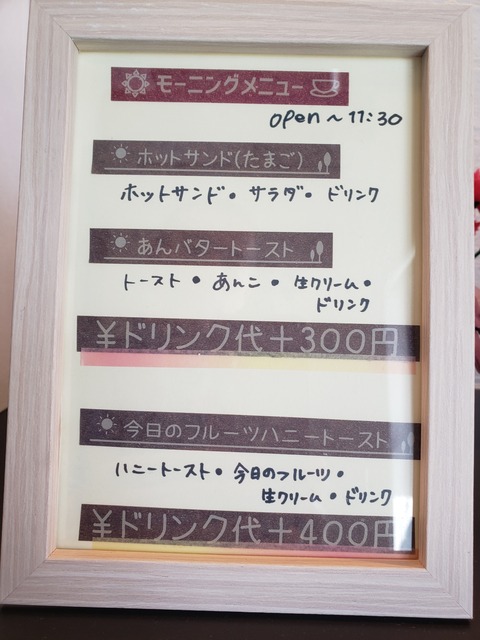 モーニングメニュー
open〜11:30
ホットサンド(たまご)
ホットサンド・サラダ・ドリンク
あんバタートースト
トースト・あんこ・生クリーム・
ドリンク
¥ドリンク代+300円
今日のフルーツハニートースト
ハニートースト・今日のフルーツ・
生クリーム・ドリンク
¥ドリンク代+400円